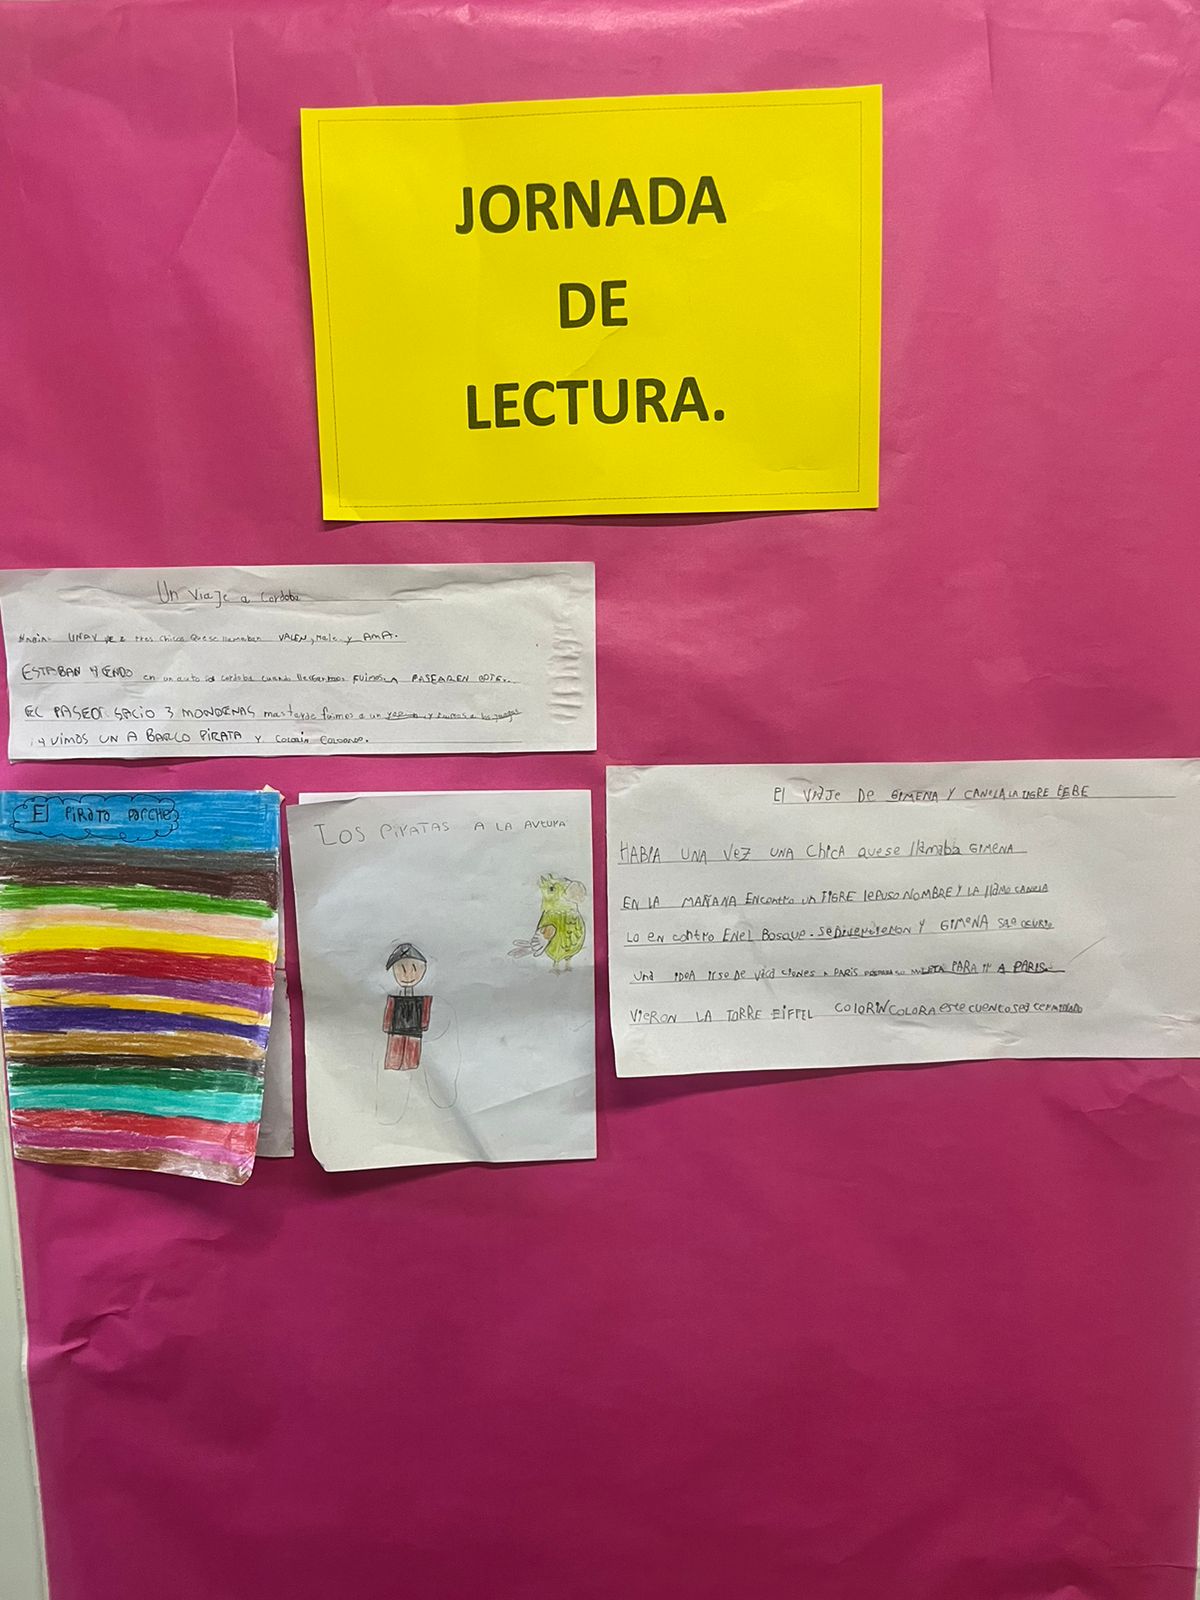 JORNADA
DE
LECTURA.
Un viaje a Cordoba
Había UNAV VEZ tres chicos que se llamaban VALEN, Male y AMA.
ESTABAN YENDO en un auto a cordoba cuando llegamos FUIMOS A PASEAR EN BOTE.
EL PASEO SACIO 3 MONDENAS mas tarde fuimos a un
y VIMOS UN A BARCO PIRATA y Colorin Colorado.
El PiRata PaRche
LOS PIRATAS A LA AVTURA
El VIAJE DE GIMENA Y CANELA LA TIGRE BEBE
HABIA UNA VEZ UNA Chica que se llamaba GIMENA
EN LA MAÑANA ENcontro un TIGRE le PUSO NOMBRE Y LA llamo CANELA
LO en contro EN el BosQue. se DIVIRTIERON Y GIMENA SE LE OCURIO
UNA IDEA IRSE DE VACA CIONES A PARIS su MALETA PARA IR A PARIS.
VIERON LA TORRE EIFFEL COLORIN COLORA este cuento se a terminado